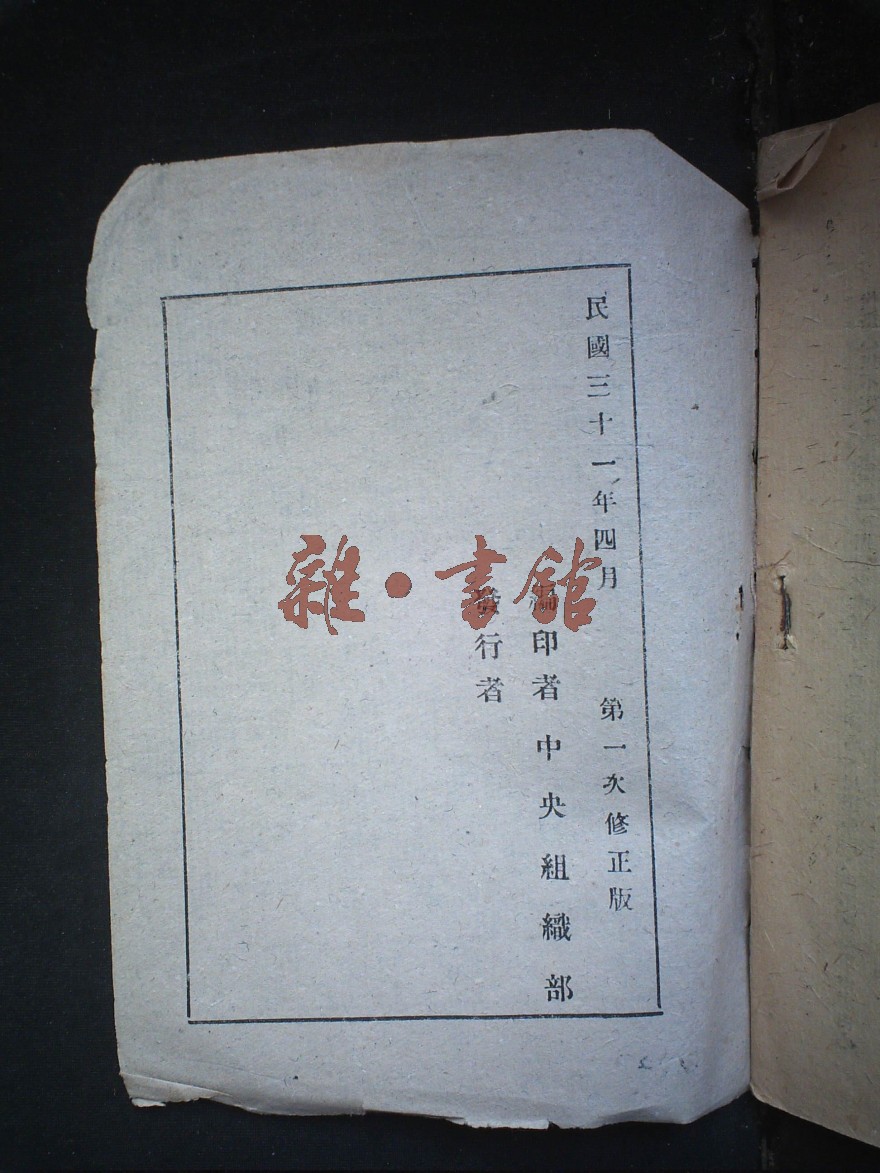 民國三十一年四月　第一次修正版
編印者中央組織部
發行者
雜・書館